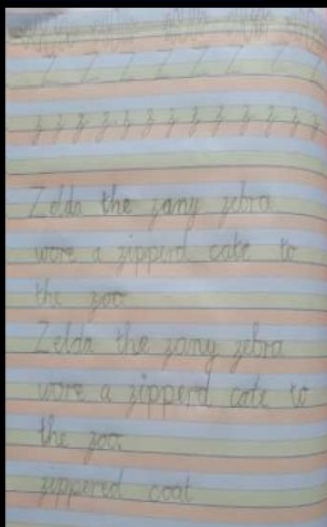 Z Z Z Z Z Z Z Z
z z z z z z z z z z z z z
Zelda the zany zebra
wore a zipperd cate to
the zoo
Zelda the zany zebra
wore a zipperd cate to
the zoo
zippered coat